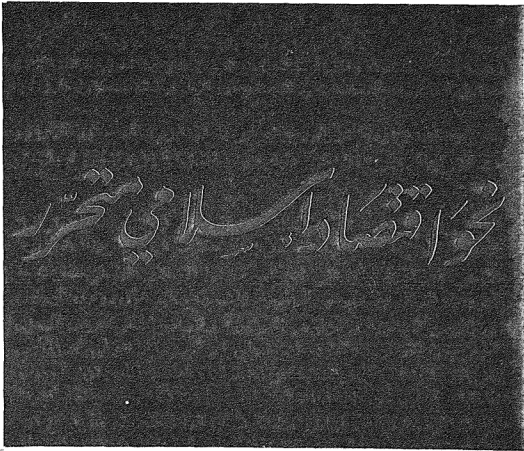 نحو اقتصاد إسلامي متحرّر